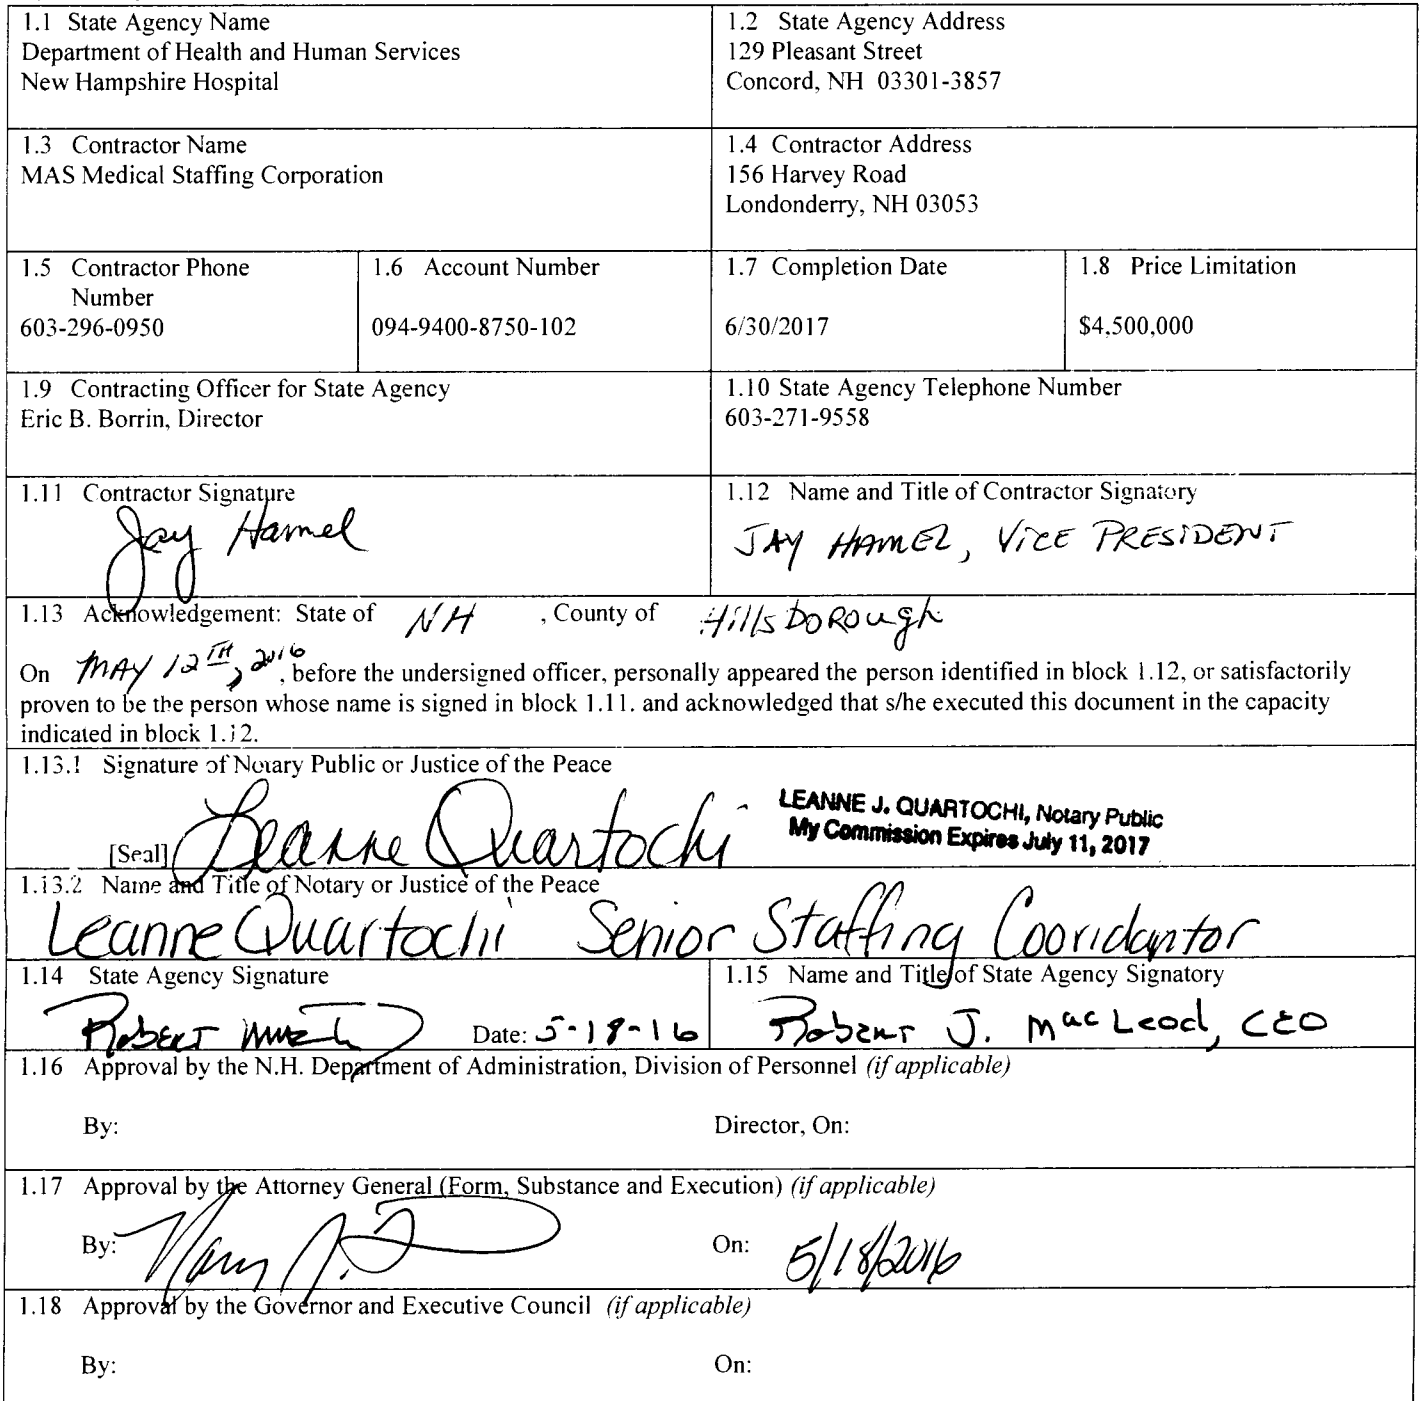 1.1 State Agency Name
Department of Health and Human Services
New Hampshire Hospital
1.2 State Agency Address
129 Pleasant Street
Concord, NH 03301-3857
1.3 Contractor Name
MAS Medical Staffing Corporation
1.4 Contractor Address
156 Harvey Road
Londonderry, NH 03053
1.5 Contractor Phone
Number
603-296-0950
1.6 Account Number
094-9400-8750-102
1.7 Completion Date
6/30/2017
1.8 Price Limitation
$4,500,000
1.9 Contracting Officer for State Agency
Eric B. Borrin, Director
1.10 State Agency Telephone Number
603-271-9558
1.11 Contractor Signature
Jay Hamel
1.12 Name and Title of Contractor Signatory
JAY HAMEL, VICE PRESIDENT
1.13 Acknowledgement: State of NH , County of Hillsborough
On MAY 12TH, 2016, before the undersigned officer, personally appeared the person identified in block 1.12, or satisfactorily
proven to be the person whose name is signed in block 1.11. and acknowledged that s/he executed this document in the capacity
indicated in block 1.12.
1.13.1 Signature of Notary Public or Justice of the Peace
LEANNE J. QUARTOCHI, Notary Public
My Commission Expires July 11, 2017
[Seal] Leanne Quartochi
1.13.2 Name and Title of Notary or Justice of the Peace
Leanne Quartochi Senior Staffing Cooridantor
1.14 State Agency Signature
Robert Date: 5-18-16
1.15 Name and Title of State Agency Signatory
Robert J. MacLeod, CEO
1.16 Approval by the N.H. Department of Administration, Division of Personnel (if applicable)
By: Director, On:
1.17 Approval by the Attorney General (Form, Substance and Execution) (if applicable)
By: On: 5/18/2016
1.18 Approval by the Governor and Executive Council (if applicable)
By: On: